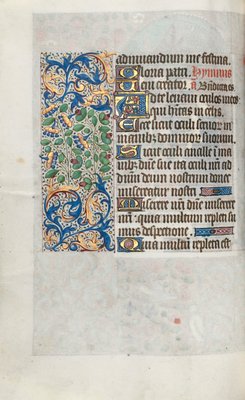 adiuuandum me festina
Gloria patri Hymnus
eni creator ā
Ad te leuaui oculos meos
qui habitas in celis
Ecce sicut oculi seruor̄ in
manibus dominor̄ suorum
Et sicut oculi ancille ī ma
nibus dn̄e sue ita oculi nr̄i ad
dn̄m deum nostrum donec
misereatur nostri
Miserere nr̄i dn̄e miserere
nr̄i quia multum repleti su
mus despectione
Quia multum repleta est